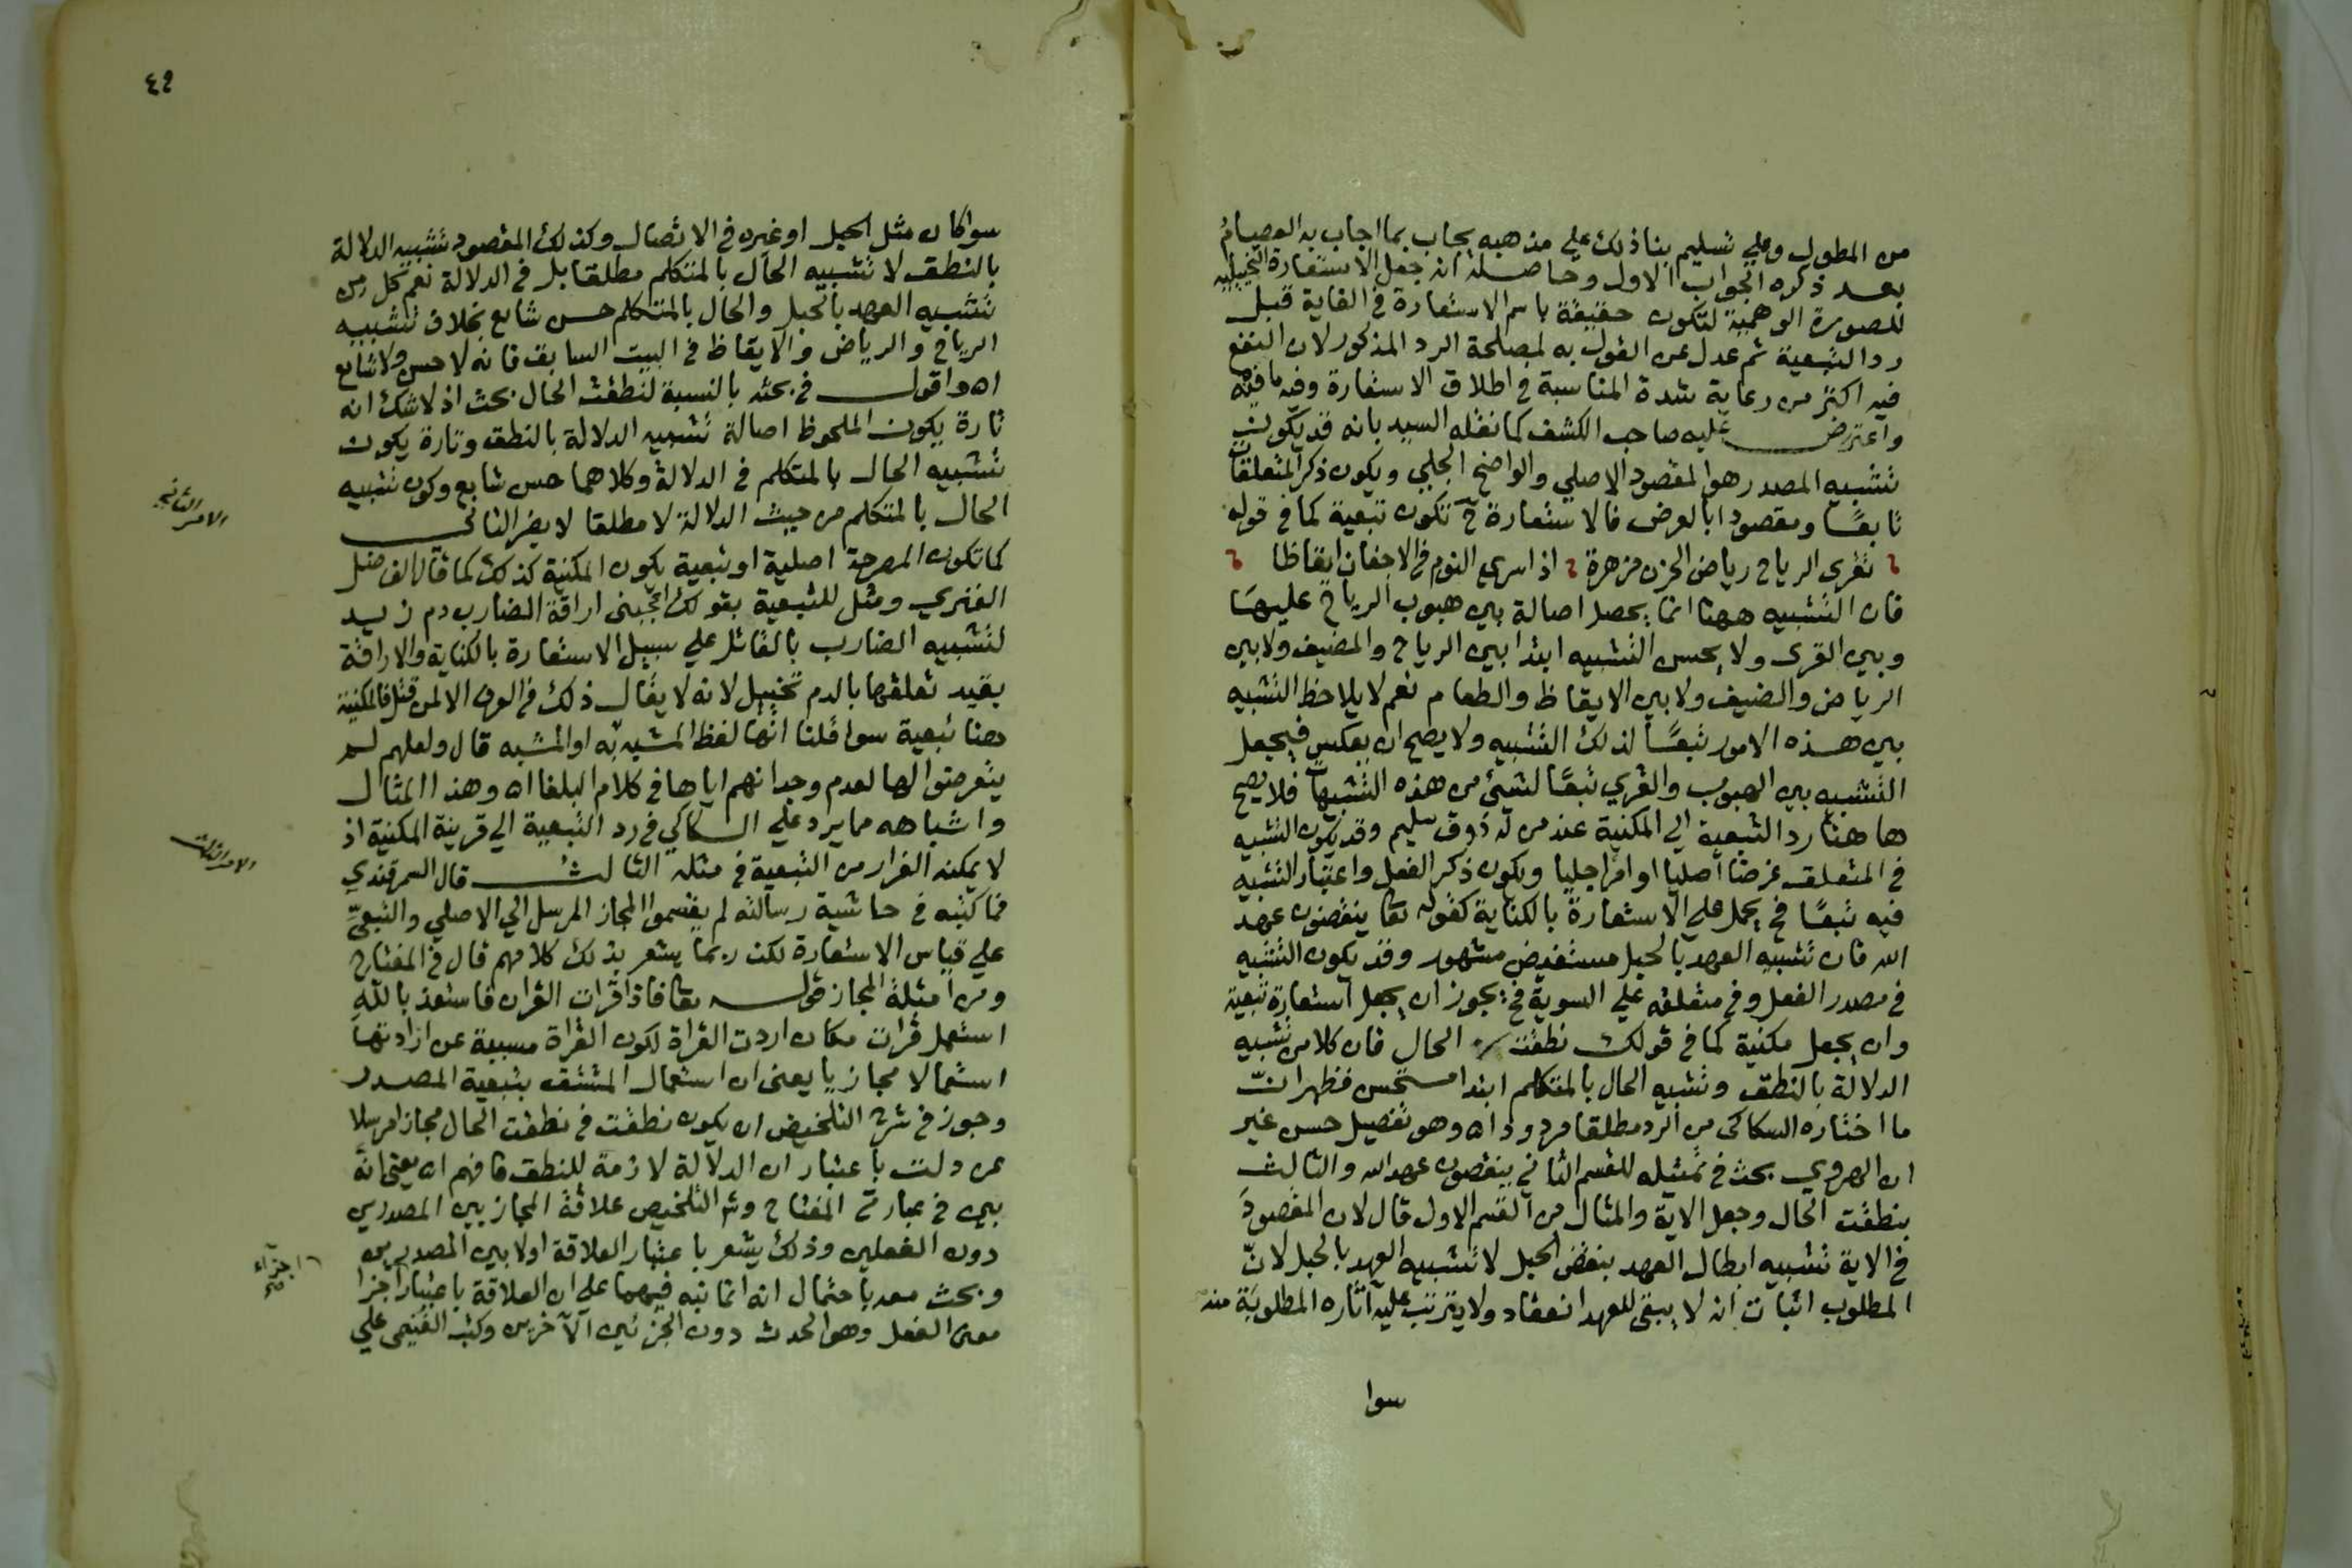 من المطول وعلي تسليم بنا ذلك علي مذهبه يجاب بما اجاب به العصام
بعد ذكره الجواب الاول وحاصله انه جعل الاستعارة التخييليه
للصورة الوهمية لتكون حقيقة باسم الاستعارة في الغاية قبل
رد التبعية ثم عدل عن القول به لمصلحة الرد المذكور لان النفع
فيه اكثر من رعاية شدة المناسبة في اطلاق الاستعارة وفيه ما فيه
واعترض عليه صاحب الكشف كما نقله السيد بانه قد يكون
تشبيه المصدر هو المقصود الاصلي والواضح الجلي ويكون ذكر المتعلقات
تابعًا ومقصودا بالعرض فالاستعارة ح تكون تبعية كما في قوله
تقري الرياح رياض الحزن مزهرة اذا سري النوم في الاجفان ايقاظا
فان التشبيه ههنا انما يحصل اصالة بين هبوب الرياح عليها
وبين القرى ولا يحسن التشبيه ابتدا بين الرياح والمضيف ولا بين
الرياض والضيف ولا بين الايقاظ والطعام نعم لا يلاحظ التشبيه
بين هذه الامور تبعًا لذلك التشبيه ولا يصح ان يعكس فيجعل
التشبيه بين الهبوب والقري تبعًا لشيئ من هذه التشبيهات فلا يصح
ها هنا رد التبعية الي المكنية عند من له ذوق سليم وقد يكون التشبيه
في المتعلق غرضا اصليا او امرا جليا ويكون ذكر الفعل واعتبار التشبيه
فيه تبعًا فح يحمل علي الاستعارة بالكناية كقوله تعا ينقضون عهد
الله فان تشبيه العهد بالحبل مستفيض مشهور وقد يكون التشبيه
في مصدر الفعل وفي متعلقه علي السوية فح يجوز ان يجعل استعارة تبعية
وان يجعل مكنية كما في قولك نطقت الحال فان كلا من تشبيه
الدلالة بالنطق وتشبيه الحال بالمتكلم ابتدا مستحسن فظهر انّ
ما اختاره السكاكى من الرد مطلقا مردود اه وهو تفصيل حسن غير
ان الهروي بحث في تمثيله للقسم الثاني بينقضون عهد الله والثالث
بنطقت الحال وجعل الاية والمثال من القسم الاول قال لان المقصود
في الاية تشبيه ابطال العهد بنقض الحبل لا تشبيه العهد بالحبل لانّ
المطلوب اثبات انه لا يبقى للعهد انعقاد ولا يترتب عليه آثاره المطلوبة منه
سوا
٤٩
سوا كان مثل الحبل او غيره في الاتصال وكذلك المقصود تشبيه الدلالة
بالنطق لا تشبيه الحال بالمتكلم مطلقا بل في الدلالة نعم كل من
تشبيه العهد بالحبل والحال بالمتكلم حسن شايع بخلاف تشبيه
الرياح والرياض والايقاظ في البيت السابق فانه لا حسن ولا شايع
اه واقول في بحثه بالنسبة لنطقت الحال بحث اذ لا شك انه
تارة يكون الملحوظ اصالة تشبيه الدلالة بالنطق وتارة يكون
تشبيه الحال بالمتكلم في الدلالة وكلاهما حسن شايع وكون تشبيه
الحال بالمتكلم من حيث الدلالة لا مطلقا لا يضر الثاني
الامر الثاني
كما تكون المصرحة اصلية او تبعية يكون المكنية كذلك كما قال الفاضل
الفنري ومثل للتبعية بقولك اعجبني اراقة الضارب دم زيد
لتشبيه الضارب بالقاتل علي سبيل الاستعارة بالكناية والاراقة
بقيد تعلقها بالدم تخييل لانه لا يقال ذلك في العرف الا لمن قتل فالمكنية
هنا تبعية سوا قلنا انها لفظ المشبه به او المشبه قال ولعلهم لم
يتعرضوا لها لعدم وجدانهم اياها في كلام البلغا اه وهذا المثال
واشباهه مما يرد علي السكاكي في رد التبعية الي قرينة المكنية اذ
لا يمكنه الفرار من التبعية في مثله الثالث قال السمرقندي
الامر الثالث
فما كتبه في حاشية رسالته لم يقسموا المجاز المرسل الي الاصلي والتبعيّ
علي قياس الاستعارة لكن ربما يشعر بذلك كلامهم قال في المفتاح
ومن امثلة المجاز قوله تعا فاذا قرات القران فاستعذ بالله
استعمل قرات مكان اردت القراة لكون القراة مسببة عن ارادتها
استعمالا مجازيا يعني ان استعمال المشتق بتبعية المصدر
وجوز في شرح التلخيص ان يكون نطقت في نطقت الحال مجازا مرسلا
عن دلت باعتبار ان الدلالة لازمة للنطق فافهم اه يعني انه
بين في عبارتي المفتاح وشرح التلخيص علاقة المجاز بين المصدرين
دون الفعلين وذلك يشعر باعتبار العلاقة اولا بين المصدرين
وبحث معه باحتمال انه انما نبه فيهما علي ان العلاقة باعتبار اجزا
اجزاء صح
معنى الفعل وهو الحدث دون الجزئين الآخرين وكتب الغنيمي علي